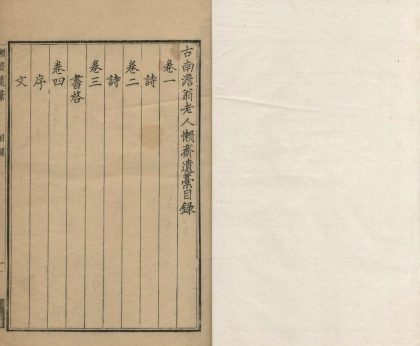 古南澹翁老人懶齋遺藁目錄
卷一
詩
卷二
詩
卷三
書啓
卷四
序
文
懶齋遺藁
目錄
一